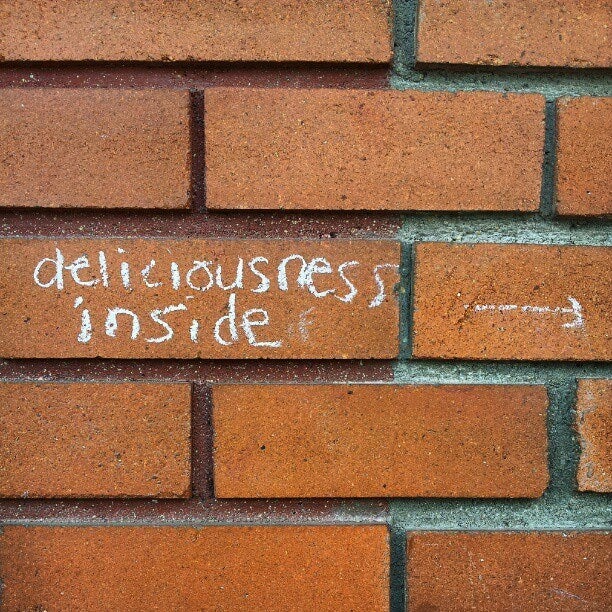 deliciousness
inside